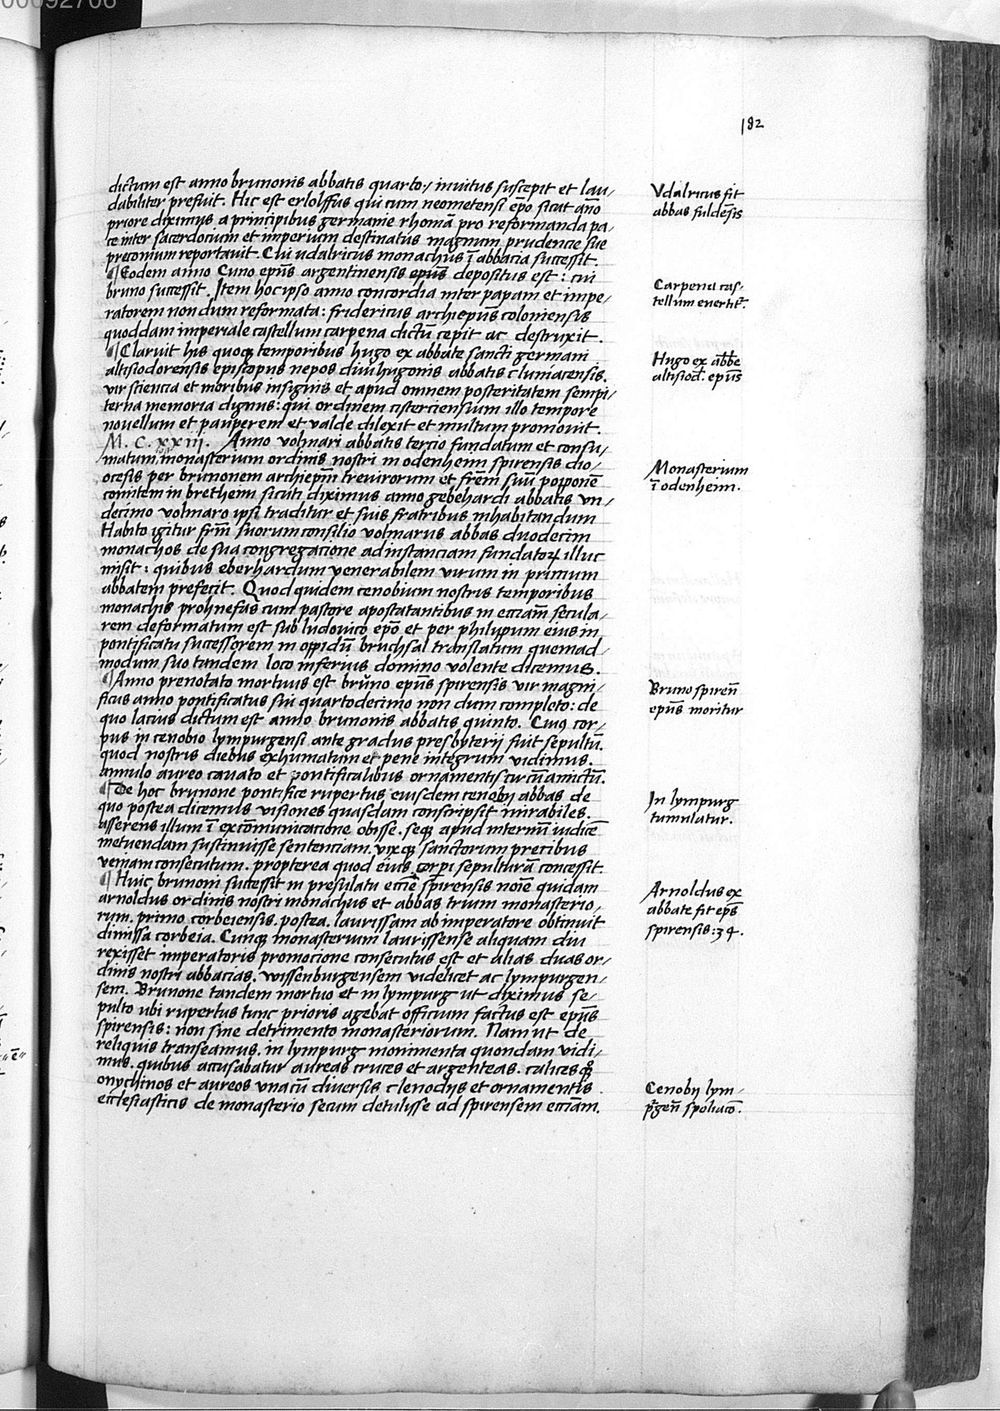 182
dictum est anno brunonis abbatis quarto / invitus suscepit et lau/
dabiliter prefuit. Hic est erlolffus qui cum neometensi ep̄o sicut an̄o
priore diximus a principibus germanie rhomā pro reformanda pa/
ce inter sacerdocium et imperium destinatus magnum prudencie sue
preconium reportavit. Cui udalricus monachus ī abbacia successit.
¶ Eodem anno Cuno ep̄us argentinensis ep̄us depositus est: cui
bruno successit. Item hoc ipso anno concordia inter papam et impe/
ratorem non dum reformata: fridericus archiep̄us coloniensis
quoddam imperiale castellum carpena dictū cepit ac destruxit.
¶ Claruit his quoqꝫ temporibus hugo ex abbate sancti germani
altisiodorensis episcopus nepos divi hugonis abbatis cluniacensis.
vir sciencia et moribus insignis et apud omnem posteritatem sempi/
terna memoria dignus: qui ordinem cisterciensium illo tempore
novellum et pauperem et valde dilexit et multum promovit.
M. C. xxiii. Anno volmari abbatis tercio fundatum et consu/
matum monasterium ordinis nostri in odenheim spirensis dio/
ocesis per brunonem archiep̄m trevirorum et fr̄em suū popponē
comitem in bretheim sicuti diximus anno gebehardi abbatis un/
decimo volmaro ipsi traditur et suis fratribus inhabitandum
Habito igitur fr̄m suorum consilio volmarus abbas duodecim
monachos de sua congregacione ad instanciam fundatoꝝ illuc
misit: quibus eberhardum venerabilem virum in primum
abbatem prefecit. Quod quidem cenobium nostris temporibus
monachis proh nefas cum pastore apostatantibus in ecciam̄ secula/
rem deformatum est sub ludovico ep̄o et per philippum eius in
pontificatu successorem in oppidū bruchsal translatum quemad/
modum suo tandem loco inferius domino volente dicemus.
¶ Anno prenotato mortuus est brůno ep̄us spirensis vir magni/
ficus anno pontificatus sui quartodecimo non dum completo: de
quo lacius dictum est anno brunonis abbatis quinto. Cuiꝯ cor/
pus in cenobio lympurgensi ante gradus presbyterij fuit sepultū.
quod nostris diebus exhumatum et pene integrum vidimus.
annulo aureo cavato et pontificalibus ornamentis circū amictū.
¶ De hoc brunone pontifice rupertus eiusdem cenobij abbas de
quo postea dicemus visiones quasdam conscripsit mirabiles.
asserens illum ī excōmunicacione obisse. seqꝫ apud internū iudicē
metuendam sustinuisse sentenciam. vixqꝫ sanctorum precibus
veniam consecutum. propterea quod eius corpi sepulturā concessit.
¶ Huic brunoni successit in presulatu eccīe spirensis noīe quidam
arnoldus ordinis nostri monachus et abbas trium monasterio/
rum. primo corbeiensis. postea. laurissam ab imperatore obtinuit
dimissa corbeia. Cunqꝫ monasterium laurissense aliquam diu
rexisset imperatoris promocione consecutus est et alias duas or/
dinis nostri abbacias. wissenburgensem videlicet ac lympurgen/
sem. Brunone tandem mortuo et in lympurg ut diximus se/
pulto ubi rupertus tunc prioris agebat officium factus est ep̄us
spirensis: non sine detrimento monasteriorum. Nam ut de
reliquis transeamus. in lympurg monimenta quondam vidi/
mus. quibus accusabatur aureas cruces et argenteas. calices qꝫ
onychinos et aureos una cū diversis clenodijs et ornamentis
ecclesiasticis de monasterio secum detulisse ad spirensem ecciam̄.
Vdalricus fit
abbas fuldēsis
Carpena cas/
tellum evertit̄.
Hugo ex abb̄e
altisiod. ep̄us
Monasterium
ī odenheim.
Bruno spireñ
ep̄us moritur
In lympurg
tumulatur.
Arnoldus ex
abbate fit ep̄s
spirensis: 34.
Cenobij lym/
p̄geñ spoliacō.